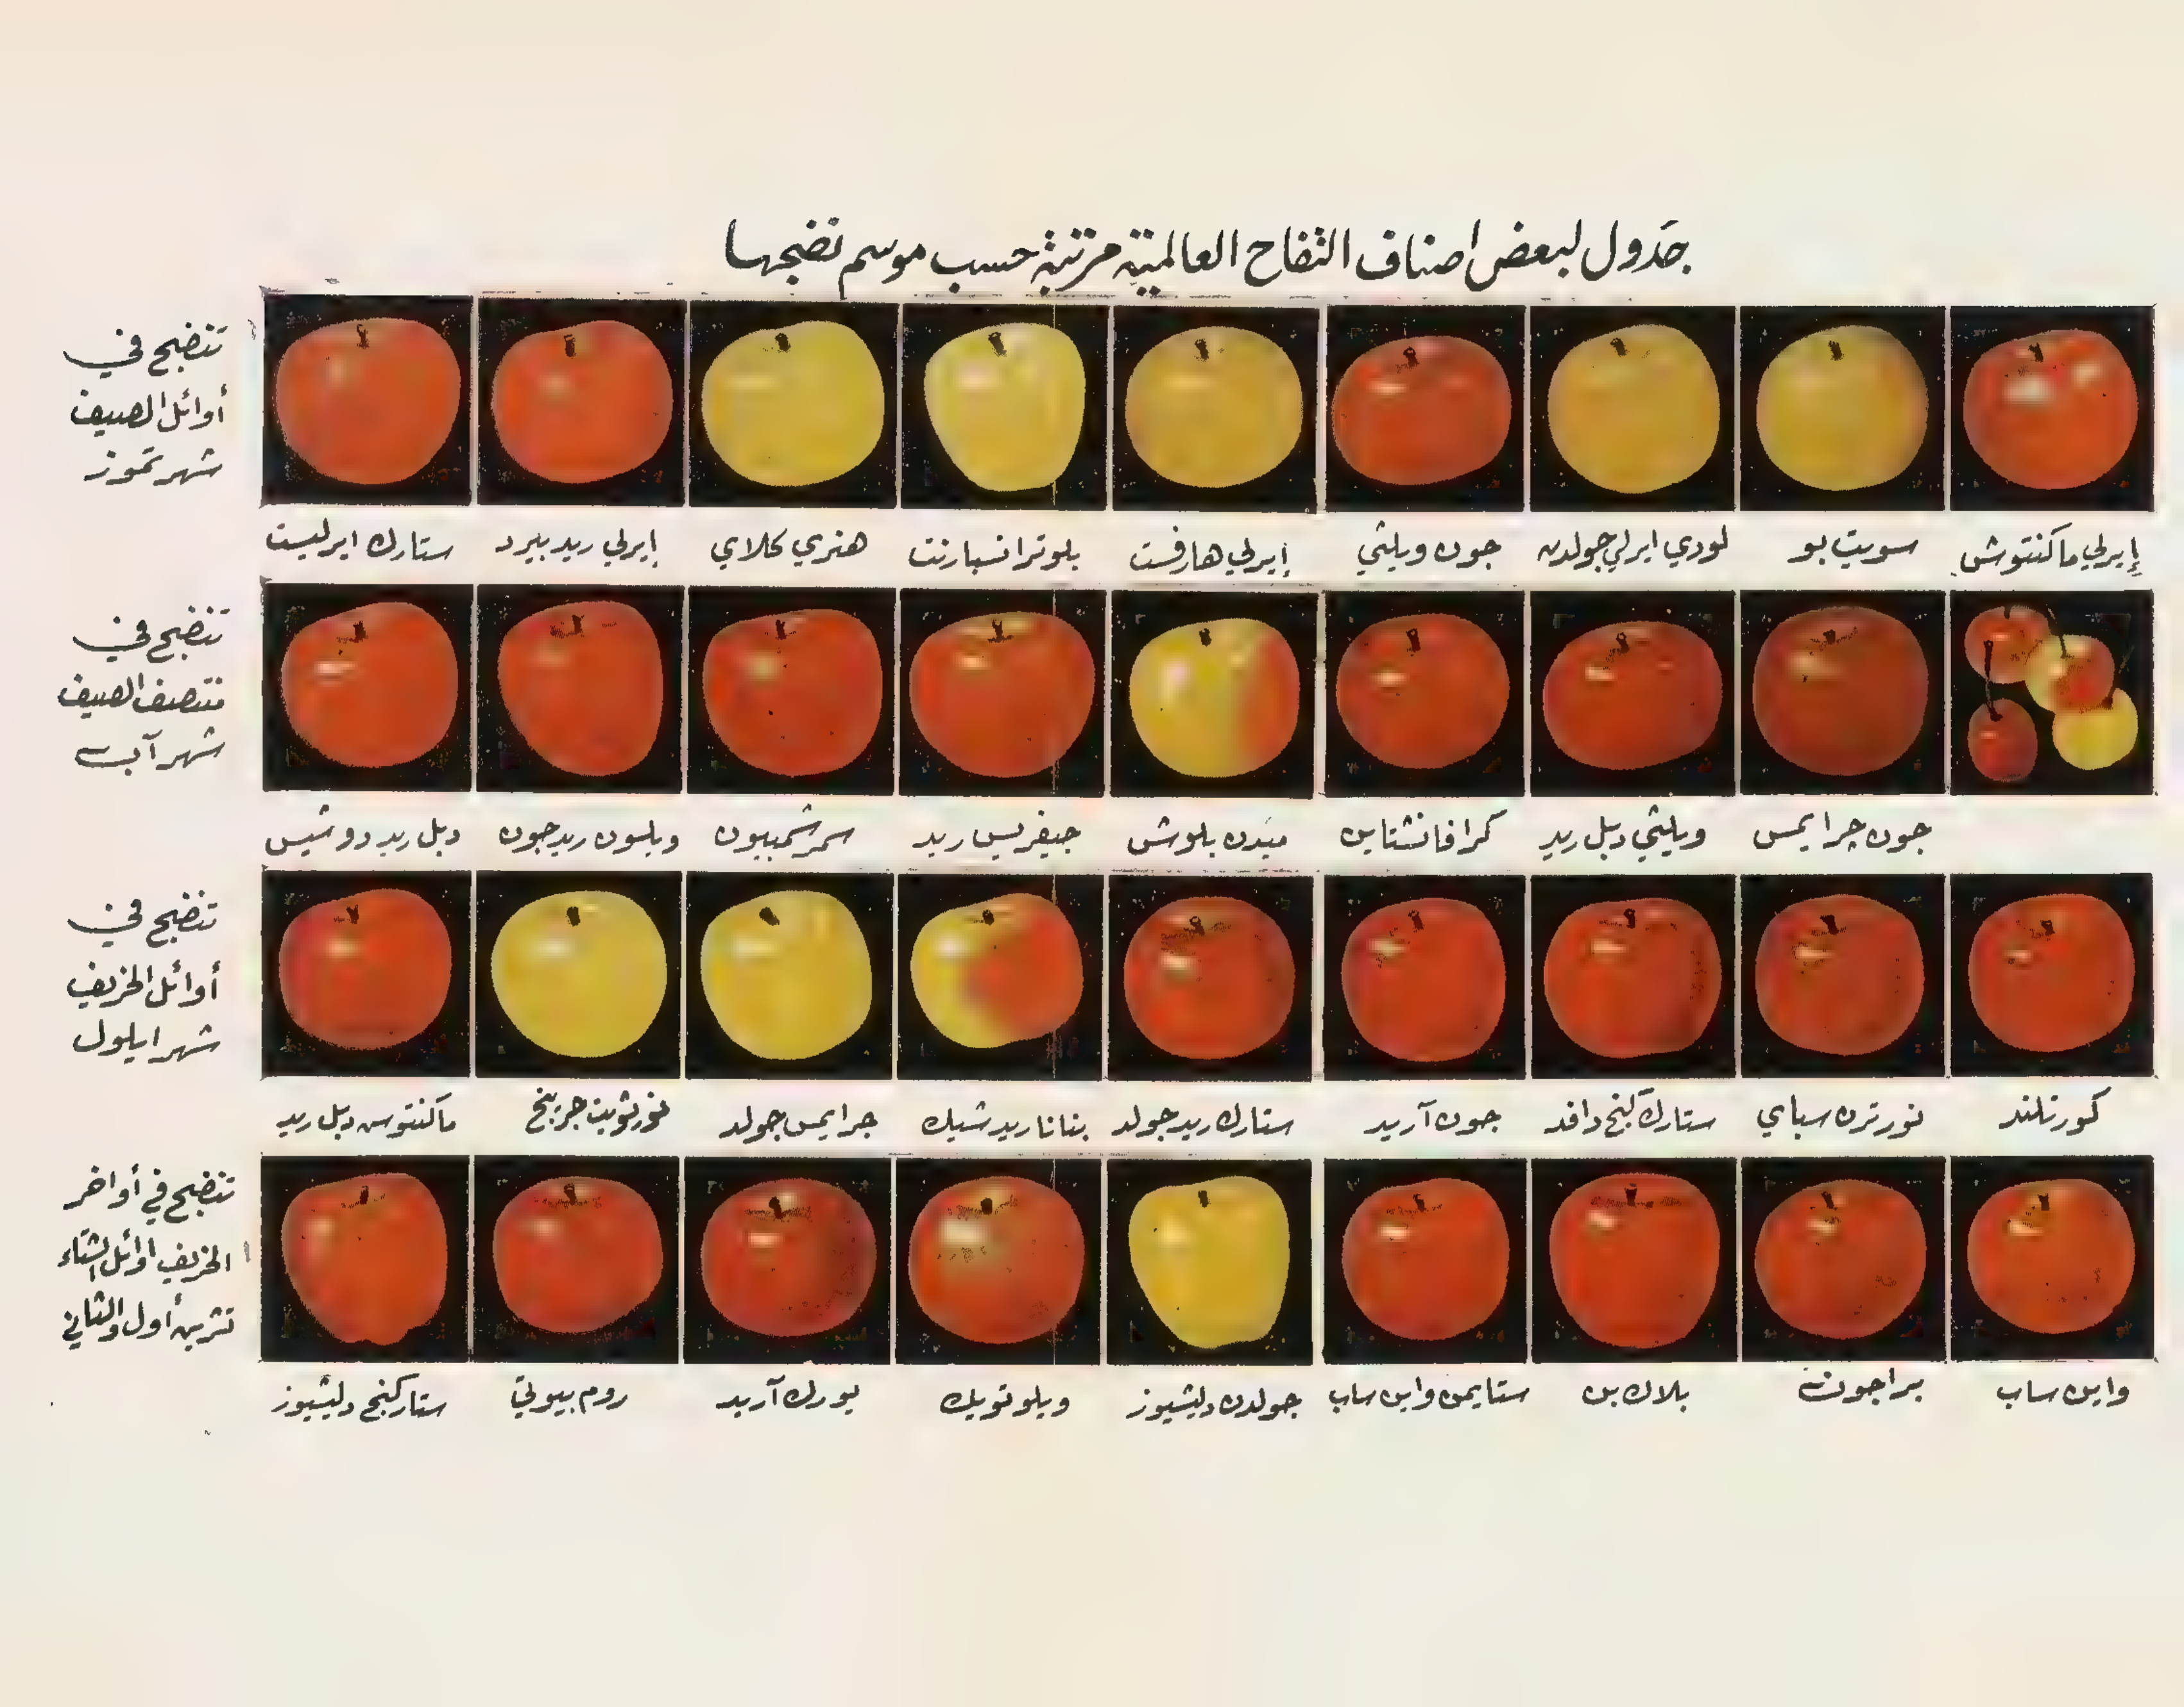 جدول لبعض اصناف التفاح العالمية مرتبة حسب موسم نضجها
تنضج في
أوائل الصيف
شهر تموز
إيرلي ماكنتوش سويت بو لودي ايرلي جولدن جون ويلثي إيرلي هارفست يلوترانسبارنت هنري كلاي إيرلي ريد بيرد ستارك ايرليست
تنضج في
منتصف الصيف
شهر آب
جون جرايمس ويلثي دبل ريد كرافانشتاين ميدن بلوش جيفريس ريد سمرشمبيون ويلسون ريد جون دبل ريد دوشيس
تنضج في
أوائل الخريف
شهر ايلول
كورتلند نورترن سباي ستارك كنج دافد جون آريد ستارك ريد جولد بنانا ريد شيك جرايمس جولد نورثويت جرينج ماكنتوس دبل ريد
تنضج في أواخر
الخريف اوائل الشتاء
تشرين أول والثاني
واين ساب براجون بلاك بن ستايمن واين ساب جولدن دلشيوز ويلو تويك يورك آريد روم بيوتي ستاركنج دلشيوز